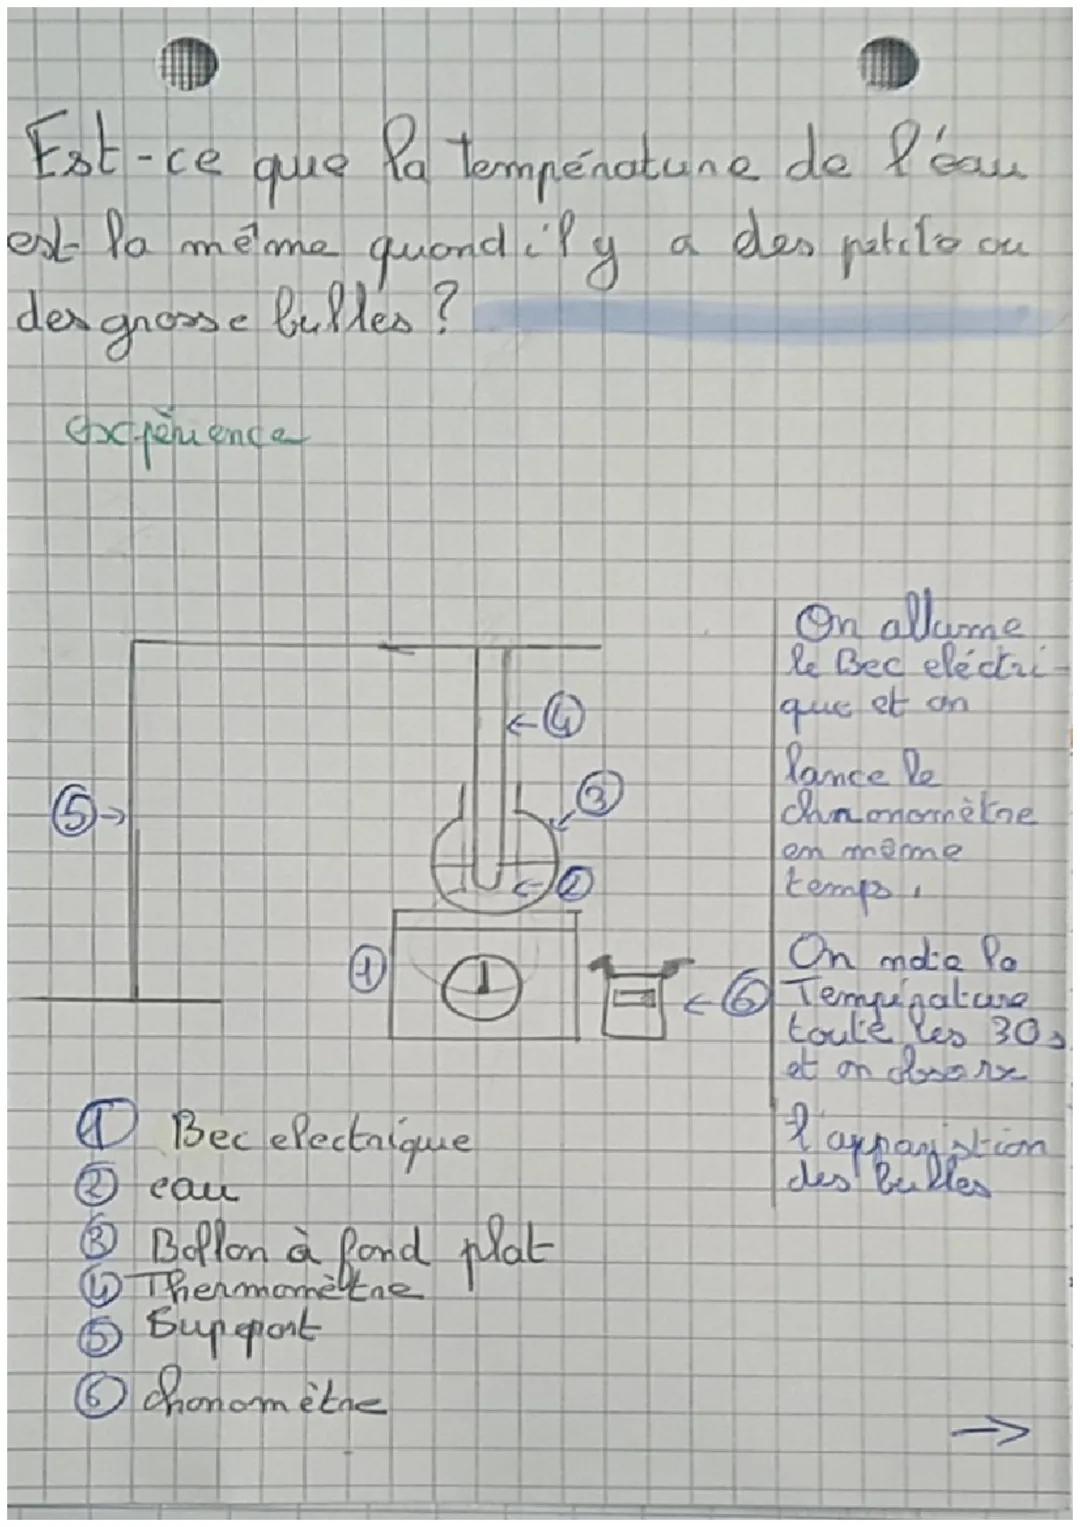 Est-ce que la température de l'eau
est la même quand il y a des petite ou
des grosse bulles ?
expérience
On allume
le Bec eléctri-
que et on
lance le
chronomètre
en même
temps.
On note la
Température
toute les 30s
et on observe
l'apparistion
des bulles
4
3
5
2
1
6
1 Bec electrique
2 eau
3 Ballon à fond plat
4 Thermomètre
5 Support
6 chonomètre